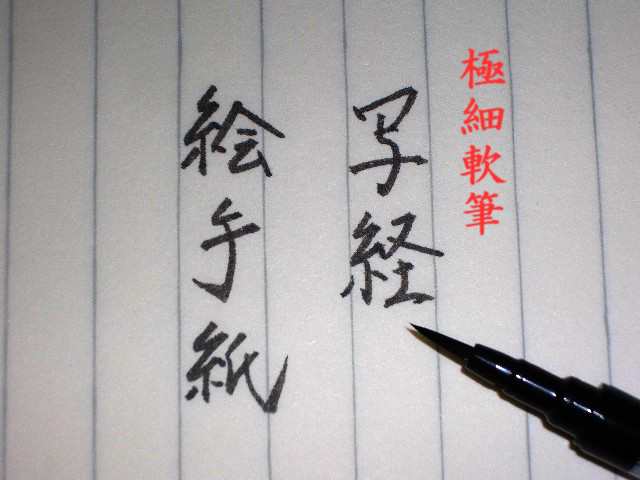 極細軟筆
写経
絵手紙